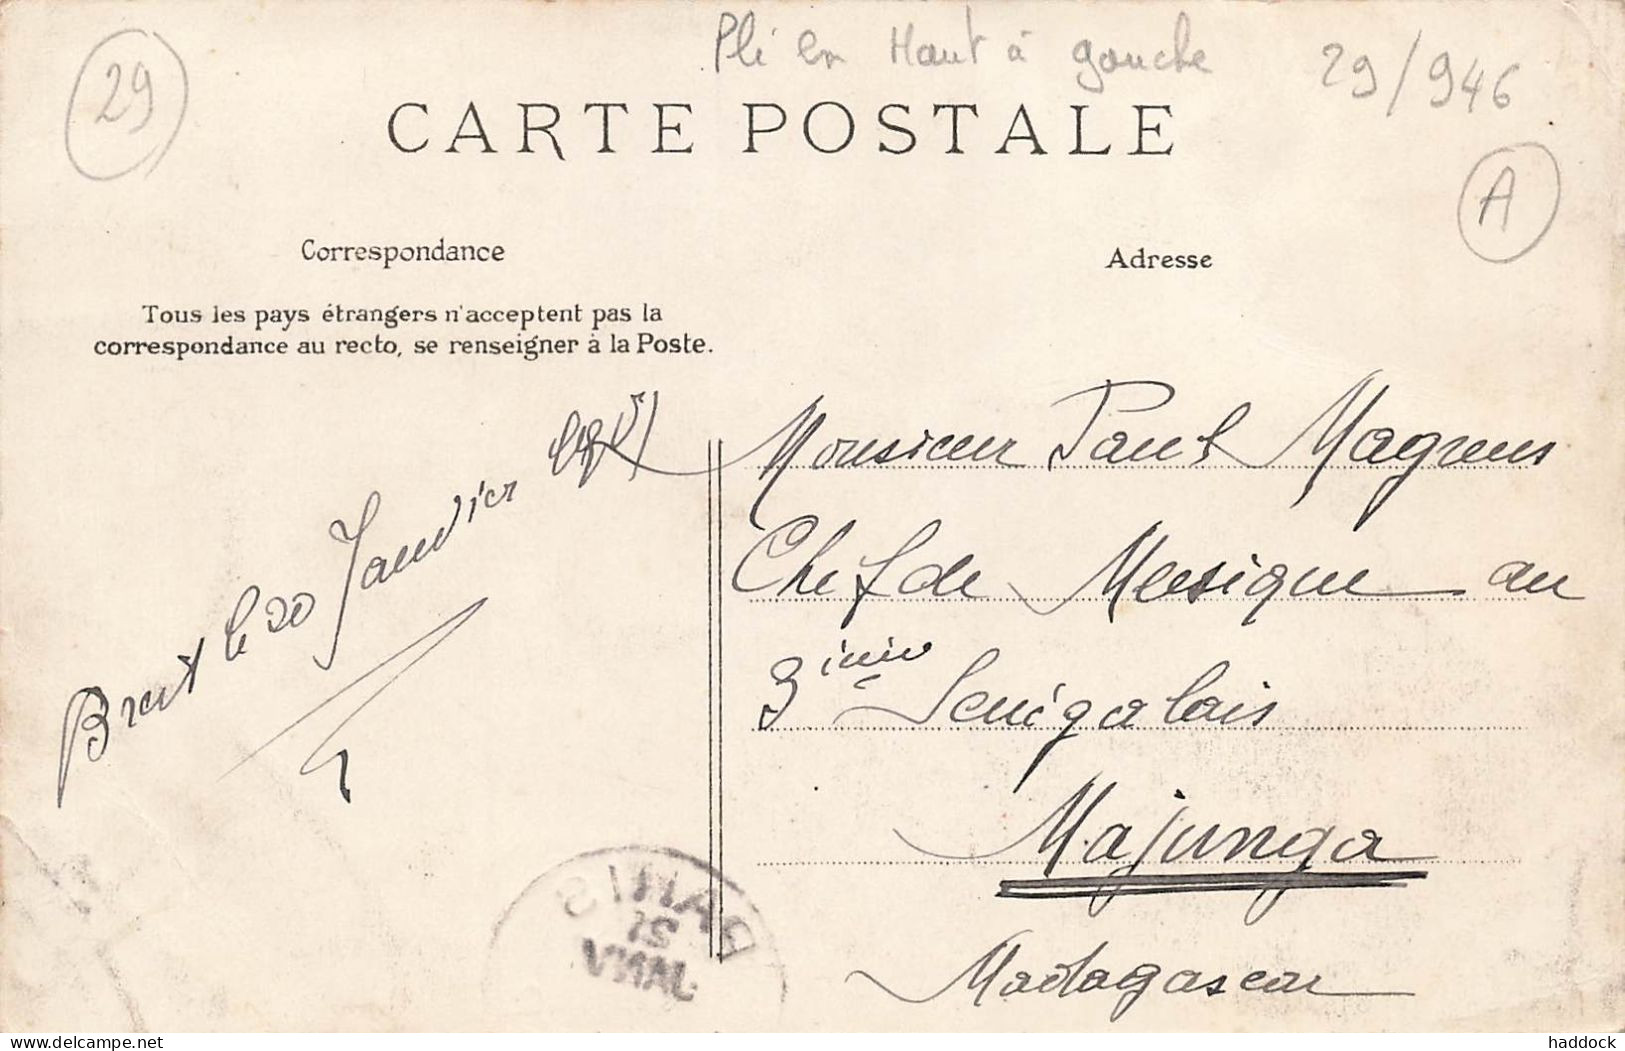 29
Pli en Haut à gauche
29/946
CARTE POSTALE
A
Correspondance
Adresse
Tous les pays étrangers n'acceptent pas la
correspondance au recto, se renseigner à la Poste.
Brest le 20 Janvier
Monsieur Paul Magneus
Chef de Musique au
3ième Sénégalais
Majunga
Madagascar
PARIS
delcampe.net
haddock